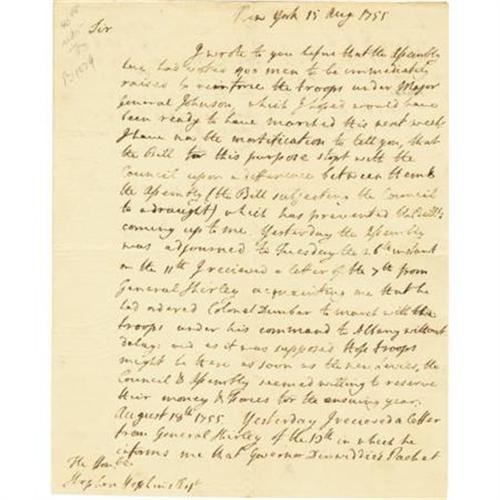 New York 15 Aug 1755
Sir
I wrote to you before that the Assembly
here had voted 400 men to be immediately
raised to reinforce the troops under Major
General Johnson, which I hoped would have
been ready to have marched this next week
I have now the mortification to tell you, that
the Bill for this purpose stopt with the
Council upon a difference between them &
the Assembly (the Bill subjecting the Council
to a draught) which has prevented the Bills
coming up to me. Yesterday the Assembly
was adjourned to Tuesday the 26th instant
on the 11th I received a letter of the 7th from
General Shirley acquainting me that he
had ordered Colonel Dunbar to march with the
troops under his command to Albany without
delay and as it was supposed those troops
might be there as soon as the new levies, the
Council & Assembly seemed willing to reserve
their money & forces for the ensuing year.
August 18th 1755. Yesterday I received a letter
from General Shirley of the 12th in which he
informs me that Governor Dinwiddie's Packet
The Honble
Stephen Hopkins Esqr